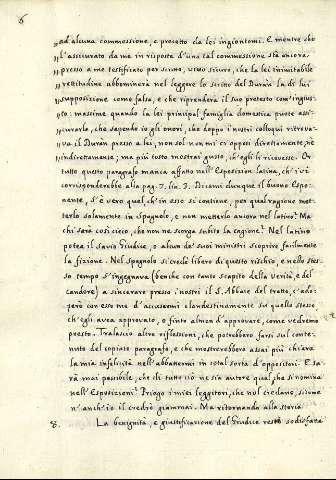 6
ad alcuna commessione, e precetto da lei ingiontomi. E mentre che
l'assicurato da me in risposta d'una tal commessione stà ancora
presso a me testificato per scritto, vivo sicuro, che la lei inimitabile
rettitudine abbominerà nel leggere lo scritto del Duràn la di lui
supposizione come falsa, e che riprenderà il suo pretesto com'ingius-
to: massime quando la lei principal famiglia domestica puote assi-
curarla, che sapendo io gli onori, che doppo i nostri colloqui ritrova-
va il Duràn presso a lei, non sol non mi ci opposi direttamente, nè
indirettamente; ma più tosto mostrai gusto, ch'egli li ricevesse. Or
tutto questo paragrafo manca affatto nell'Esposizion latina, ch'ivi
corrisponderebbe alla pag. 7. lin. 3. Dicami dunque il buono Espo-
nente, s'è vero quel ch'in esso si contiene, per qual ragione met-
terlo solamente in ispagnolo, e non metterlo ancora nel latino? Ma
chi sarà così cieco, che non ne scorga subito la cagione? Nel latino
potea il savio Giudice, o alcun de' suoi ministri scoprire facilmente
la fizione. Nel spagnolo si credè libero di questo rischio, e nello stes-
so tempo s'ingegnava (benche con tanto scapito della verità, e del
candore) a sincerare presso i nostri il S. Abate del tratto, ch'ado-
però con esso me d'accusarmi clandestinamente su quello stesso
ch'egli avea approvato, o finto almen d'approvare, come vedremo
presto. Tralascio altre riflessioni, che potrebbero farsi sul conte-
nuto del copiato paragrafo, e che mostrerebbero assai più chiara
la mia infelicità nell'abbattermi in total sorta d'oppositori. E sa-
rà mai possibile, che di tutto ciò ne sia autore qual, che si nomina
nell'Esposizioni? Priego i miei leggitori, che nol credano, siccome
n'anch'io il crediò giammai. Ma ritornando alla storia
8. La benignità, e giustificazione del Giudice restò sodisfatta